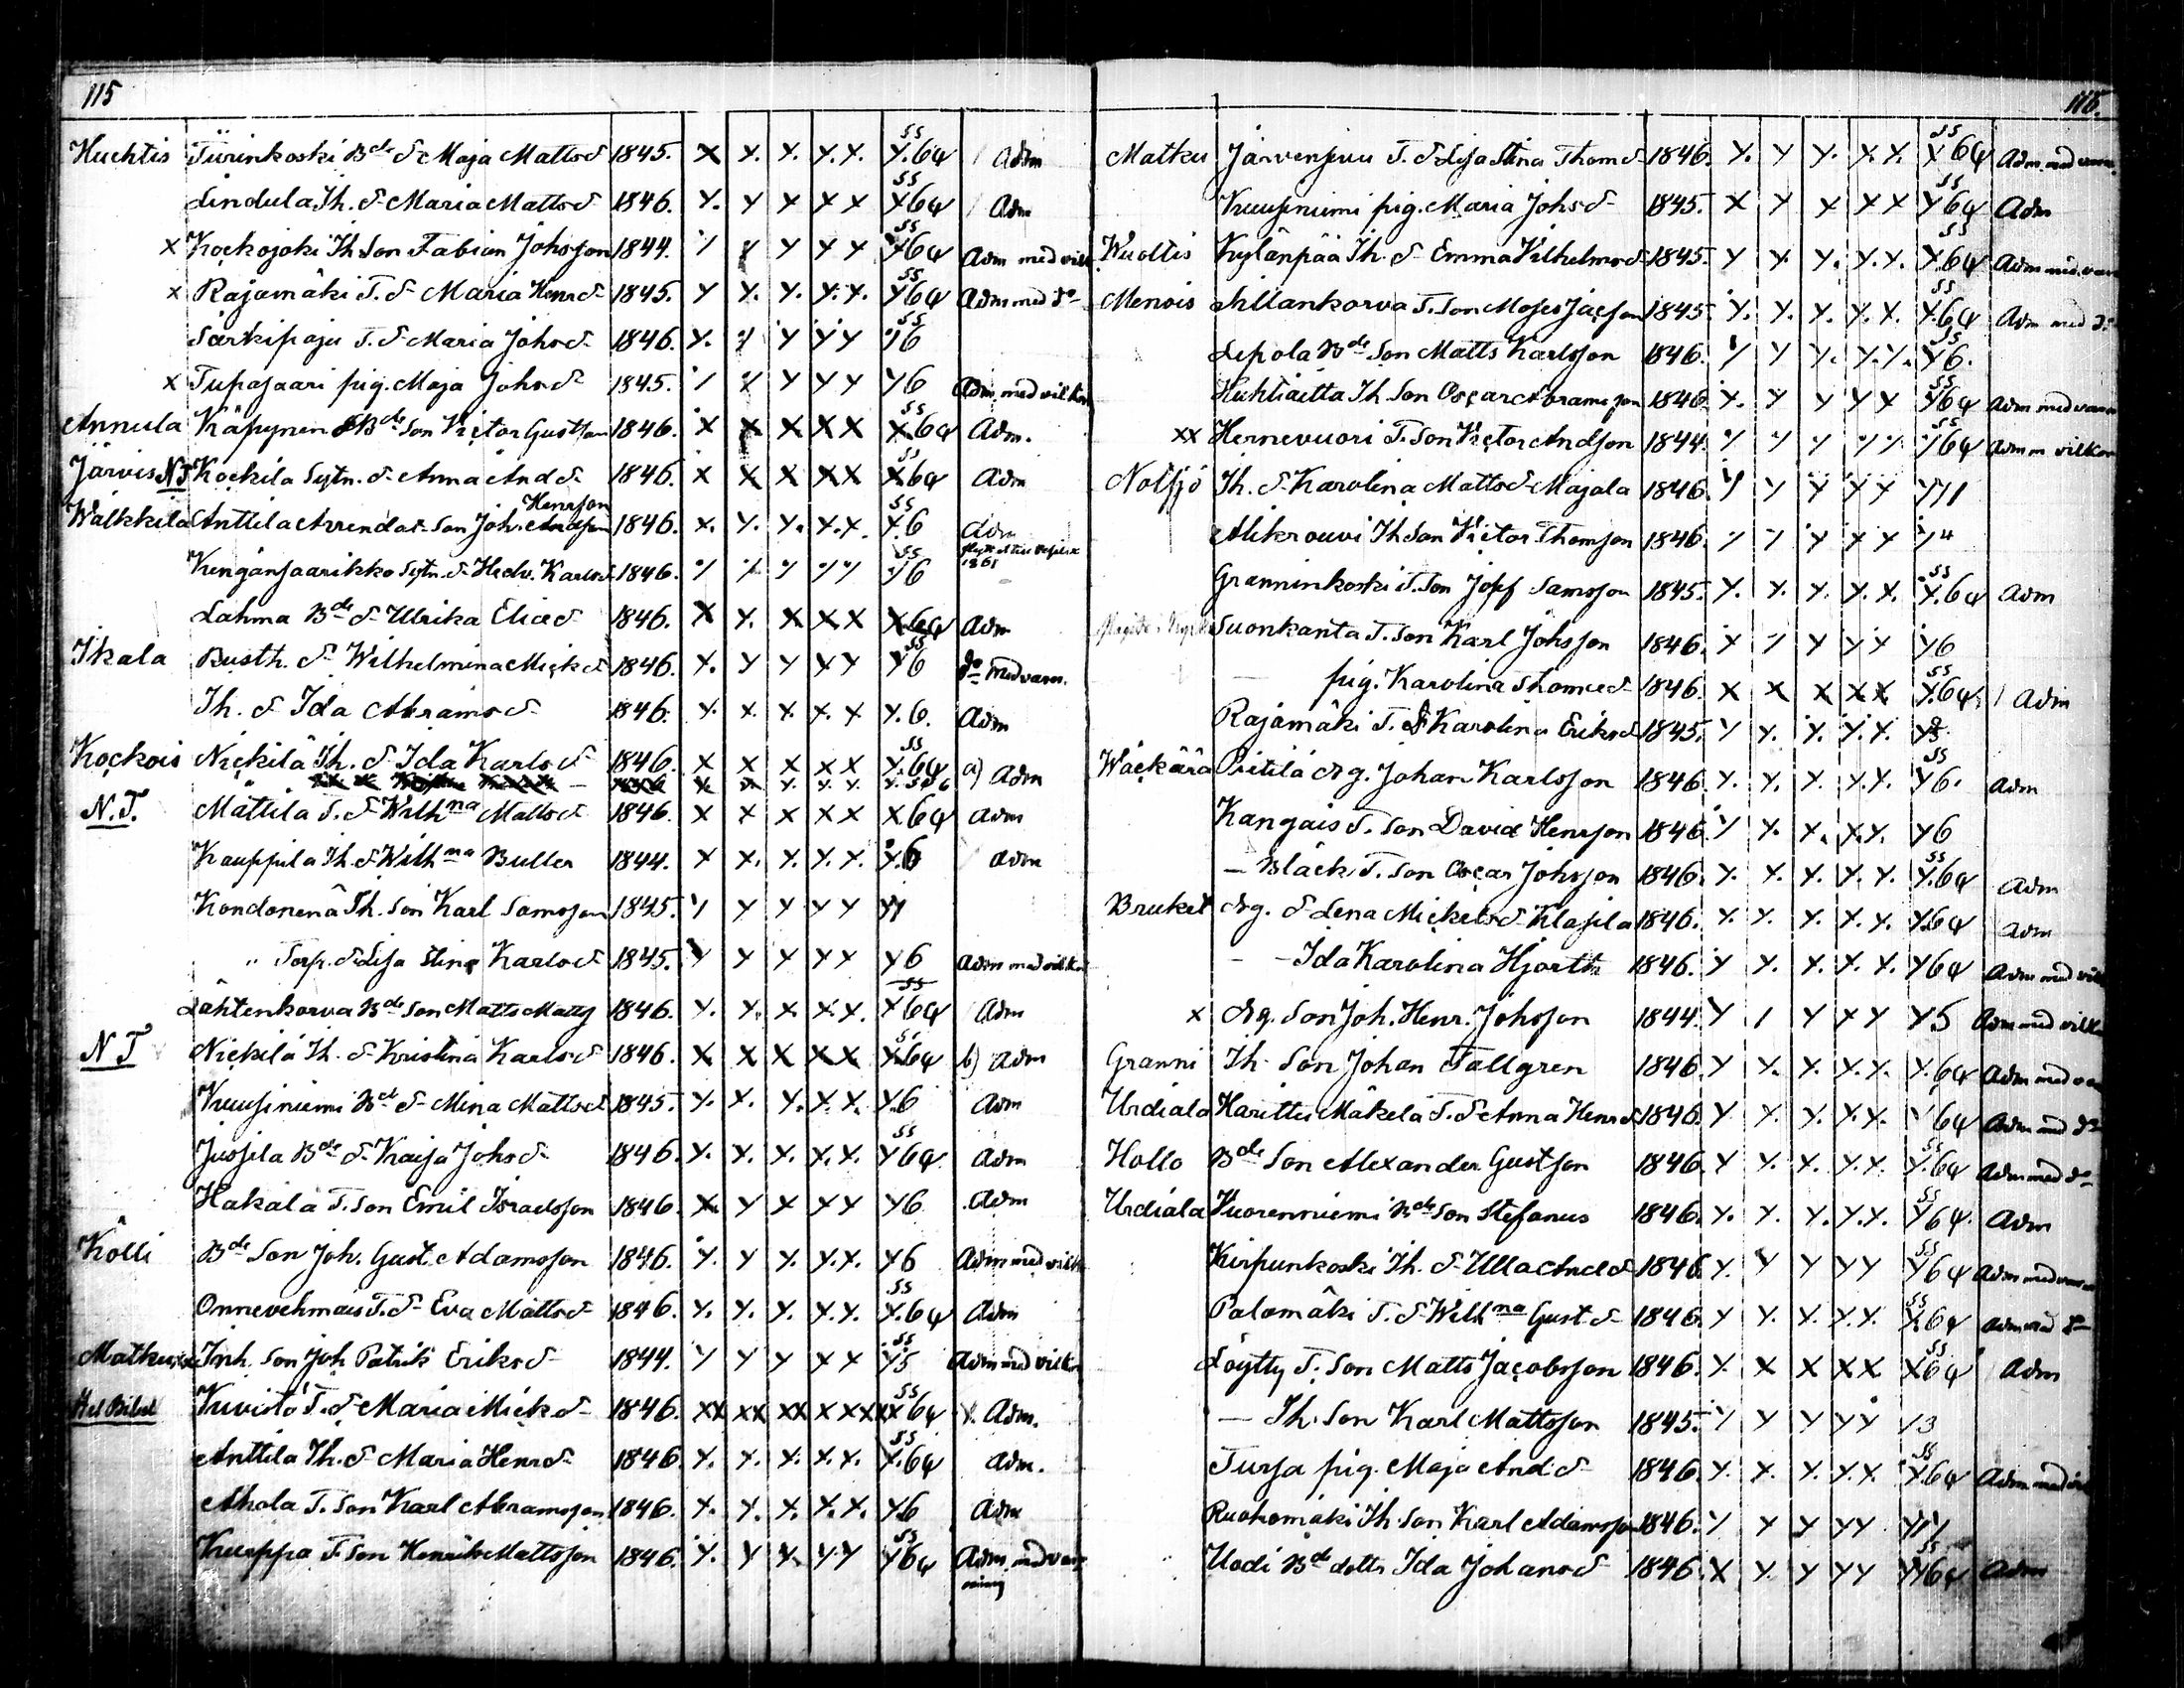 115
Huchtis Türinkoski Bde d. Maja Mattsd 1845. X Y. Y. Y. Y. Y. 64 Adm
Lindula Th. d. Maria Mattsd 1846. Y. Y X X X X64 Adm
x Kockojoki Th Son Fabian Johsson 1844. Y Y Y Y Y Y64 Adm med vilk
x Rajamäki T. d. Maria Henrd 1845. Y Y. Y. Y. Y. Y64 Adm med do
Särkipaju T. d. Maria Johsd 1846. Y. Y Y Y Y Y6
x Tupasaari pig. Maja Johsd 1845. Y Y Y Y Y Y6 Adm. med vilkor
Annula Käpynen Bde Son Victor Gustsson 1846. X X X X X X64 Adm.
Järvis NT Kockila Sytn. d. Anna Andd 1846. X X X X X X64 Adm
Henrsson
Walkkila Anttila Arrendat. Son Joh. Andsson 1846. X. Y. Y. X. X. X.6 Adm
1861
Kengänsaarikko Sytn. d. Hedv. Karlsd 1846. Y Y Y Y Y Y6
Lahma Bde d. Ulrika Eliæd 1846. X Y. X X X X64 Adm
Ikala Rusth. d. Wilhelmina Mickd 1846. Y. Y Y X Y Y6 do med varn.
Th. d. Ida Abramsd 1846. Y. X. X. X. X Y.6. Adm
Kockois Nickilä Th. d. Ida Karlsd 1846. X X X X X Y.64 a) Adm
N.T. Mattila T. d. Wilhna Mattsd 1846. X X X X X X64 Adm
Kauppila Th. d. Wilhna Buller 1844. X X. Y. Y. X. Y.6 Adm
Kondonenä Th. Son Karl Samsson 1845. Y Y Y Y Y YY
" Torp. d. Lisa Stina Karlsd 1845. Y Y Y Y Y Y6 Adm med vilkor
Lähtenkorva Bde Son Matts Matts 1846. Y. Y. X X. X. X64 Adm
NT Nickilä Th. d. Kristina Karlsd 1846. X X X X X X64 b) Adm
Kuusiniemi Bde d. Mina Mattsd 1845. Y. X. Y. X. X. Y.6 Adm
Jussila Bde d. Kaisa Johsd 1846. Y. Y. Y. Y. Y. Y64 Adm
Hakala T. Son Emil Israelsson 1846 X Y X X Y Y6 Adm
Kölli Bde Son Joh. Gust. Adamsson 1846. Y. Y Y. Y. Y. Y6 Adm med vilk
Onnevehmais T. d. Eva Mattsd 1846. Y. Y. Y. Y. Y. Y.64 Adm
Matku Inh. Son Joh Patrik Eriksd 1844. Y Y Y X X Y5 Adm med vilkor
Hel Bibel Kuvisto T. d. Maria Mickd 1846. XX XX XX X XX X64 Adm.
Anttila Th. d. Maria Henrd 1846. Y. Y. Y. Y. Y. Y.64 Adm.
Ahola T. Son Karl Abramsson 1846. Y. Y. X. X. X. Y6 Adm
Kuoppa T. Son Henrik Mattsson 1846. Y. Y X. Y Y Y64 Adm. med var
ning
116.
Matku Järvensuu T. d. Lisa Stina Thomd 1846. Y. Y Y. X X. X64 Adm. med varn.
Kuusiniemi pig. Maria Johsd 1845. X Y X X X Y64 Adm
Wuoltis Kylänpää Th. d. Emma Vilhelmsd 1845. Y Y. Y. Y. Y. Y64 Adm med. varn
Menois Sillankorva T. Son Moses Jacsson 1845 Y. Y. Y. Y. X. Y.64 Adm med do
Lepola Bde Son Matts Karlsson 1846. Y Y Y. Y. Y. Y6.
Huhtiaitta Th. Son Oscar Abramsson 1846 Y. Y Y Y X Y64 Adm med varn
xx Hernevuori T. Son Victor Andsson 1844. Y Y Y Y Y Y64 Adm m vilkor
Notsjö Th. d. Karolina Mattsd Majala 1846. Y Y Y Y X YY1
Alikrouvi Th Son Victor Thomsson 1846. Y Y Y X X Y4
Granninkoski T. Son Josef Samsson 1845. Y. Y. Y. Y. X. Y.64 Adm
Suonkanta T. Son Karl Johsson 1846. X Y X Y X Y6
pig. Karolina Thomæd 1846. X X X X X Y.64 Adm
Rajamäki T. d. Karolina Eriksd 1845. Y Y. Y. Y. X. Y5
Wäckärä Pietilä drg. Johan Karlsson 1846. Y. Y. Y. Y. Y. Y6. Adm
Kangais T. Son David Henrsson 1846 Y Y. X. X. Y. Y6
— Bläck T. Son Oscar Johsson 1846. Y. Y. Y. Y. Y. Y.64 Adm
Bruket drg. d. Lena Mickelsd Klasila 1846. Y. Y. Y. X. X. Y64 Adm
- - Ida Karolina Hjorth 1846. Y Y. X. X. X. Y64 Adm med vilk
x drg. Son Joh. Henr. Johsson 1844. Y Y Y X X Y5 Adm med vilk
Granni Th. Son Johan Tallgren 1846. Y Y. Y. Y. Y. Y.64 Adm med va
Urdiala Harittu Mäkelä T. d. Anna Henrd 1846. Y Y. Y. X. X. Y64 Adm med do
Hollo Bde Son Alexander Gustsson 1846. Y Y. X. Y. Y. Y.64 Adm med do
Urdiala Vuorenniemi Bde Son Stefanus 1846. Y. Y. Y. Y. X. Y64. Adm
Kirpunkoski Th. d. Ulla Andd 1846. Y. Y Y Y Y Y64 Adm med varn
Palomäki T. d. Wilhna Gustd 1846. Y Y. Y. X. Y. X64 Adm med do
Löytty T. Son Matts Jacobsson 1846. Y. X X X X X64 Adm
— Th. Son Karl Mattsson 1845. Y Y Y Y Y Y3
Tursa pig. Maja Andd 1846. Y. X. Y. Y. X Y.64 Adm med vil
Ruohomäki Th. Son Karl Adamsson 1846. Y Y Y Y Y YYY
Uodi Bde dotts Ida Johansd 1846. X Y. Y Y Y YY64 Adm